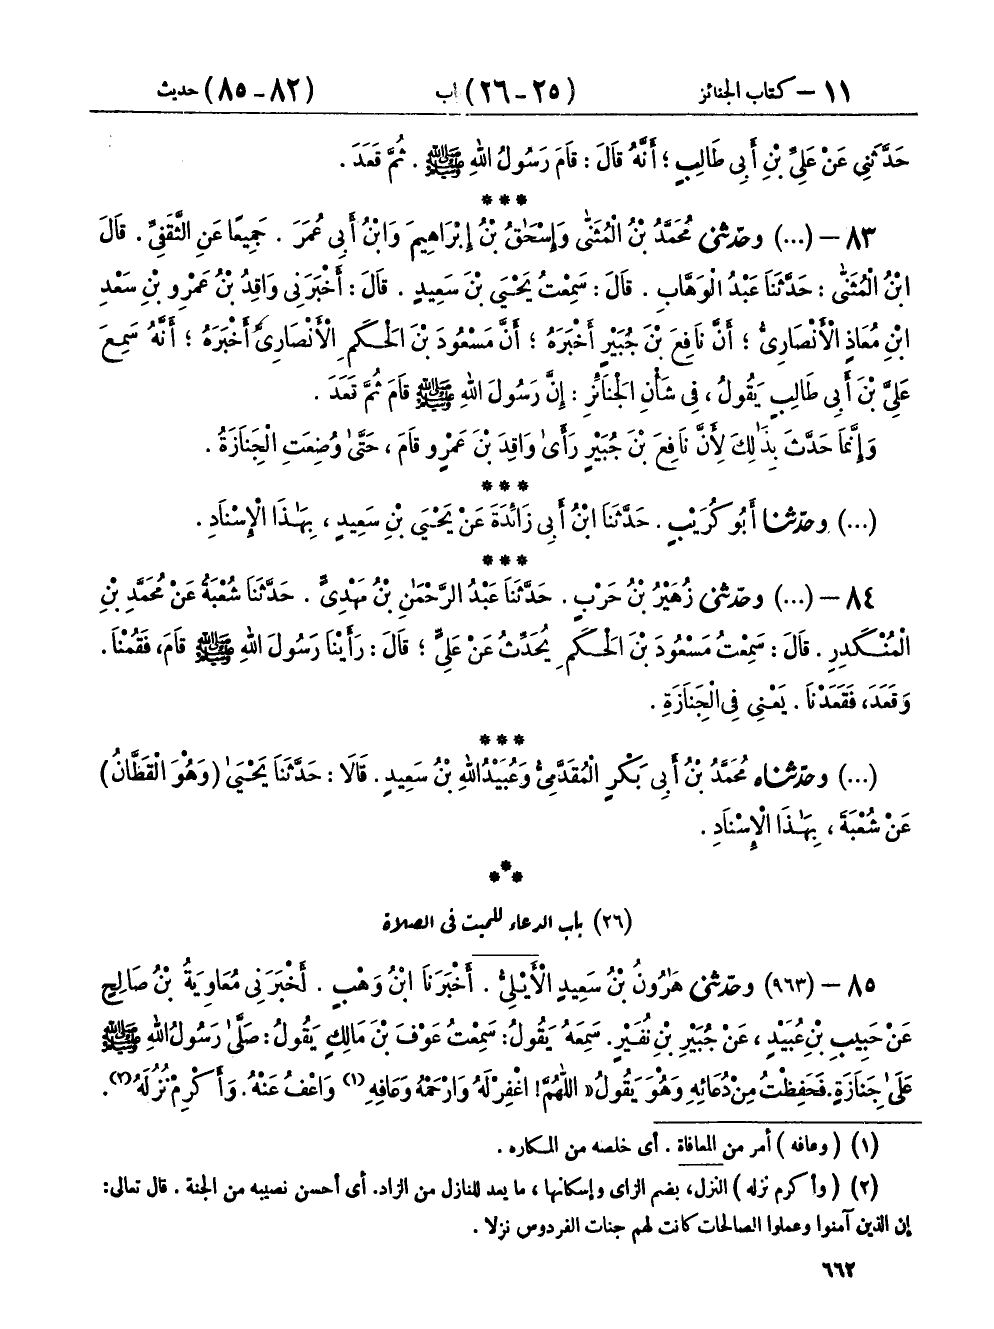 ١١ – كتاب الجنائز (٢٥-٢٦) باب (٨٢-٨٥) حديث
حَدَّثَنِي عَنْ عَلِيِّ بْنِ أَبِي طَالِبٍ ؛ أَنَّهُ قَالَ : قَامَ رَسُولُ اللهِ ﷺ . ثُمَّ قَعَدَ .
***
٨٣ – (...) وحَدَّثَنِي مُحَمَّدُ بْنُ الْمُثَنَّىٰ وَإِسْحَاقُ بْنُ إِبْرَاهِيمَ وَابْنُ أَبِي عُمَرَ . جَمِيعًا عَنِ الثَّقَفِيِّ . قَالَ
ابْنُ الْمُثَنَّىٰ : حَدَّثَنَا عَبْدُ الْوَهَّابِ . قَالَ : سَمِعْتُ يَحْيَىٰ بْنَ سَعِيدٍ . قَالَ : أَخْبَرَنِي وَاقِدُ بْنُ عَمْرِو بْنِ سَعْدِ
ابْنِ مُعَاذٍ الْأَنْصَارِيُّ ؛ أَنَّ نَافِعَ بْنَ جُبَيْرٍ أَخْبَرَهُ ؛ أَنَّ مَسْعُودَ بْنَ الْحَكَمِ الْأَنْصَارِيَّ أَخْبَرَهُ ؛ أَنَّهُ سَمِعَ
عَلِيَّ بْنَ أَبِي طَالِبٍ يَقُولُ ، فِي شَأْنِ الْجَنَائِزِ : إِنَّ رَسُولَ اللهِ ﷺ قَامَ ثُمَّ قَعَدَ .
وَإِنَّمَا حَدَّثَ بِذَٰلِكَ لِأَنَّ نَافِعَ بْنَ جُبَيْرٍ رَأَىٰ وَاقِدَ بْنَ عَمْرٍو قَامَ ، حَتَّىٰ وُضِعَتِ الْجَنَازَةُ .
***
(...) وحَدَّثَنَا أَبُو كُرَيْبٍ . حَدَّثَنَا ابْنُ أَبِي زَائِدَةَ عَنْ يَحْيَىٰ بْنِ سَعِيدٍ ، بِهَٰذَا الْإِسْنَادِ .
***
٨٤ – (...) وحَدَّثَنِي زُهَيْرُ بْنُ حَرْبٍ . حَدَّثَنَا عَبْدُ الرَّحْمَٰنِ بْنُ مَهْدِيٍّ . حَدَّثَنَا شُعْبَةُ عَنْ مُحَمَّدِ بْنِ
الْمُنْكَدِرِ . قَالَ : سَمِعْتُ مَسْعُودَ بْنَ الْحَكَمِ يُحَدِّثُ عَنْ عَلِيٍّ ؛ قَالَ : رَأَيْنَا رَسُولَ اللهِ ﷺ قَامَ، فَقُمْنَا .
وَقَعَدَ، فَقَعَدْنَا . يَعْنِي فِي الْجَنَازَةِ .
***
(...) وحَدَّثَنَاه مُحَمَّدُ بْنُ أَبِي بَكْرٍ الْمُقَدَّمِيُّ وَعُبَيْدُ اللهِ بْنُ سَعِيدٍ . قَالَا : حَدَّثَنَا يَحْيَىٰ (وَهُوَ الْقَطَّانُ)
عَنْ شُعْبَةَ ، بِهَٰذَا الْإِسْنَادِ .
***
(٢٦) باب الدعاء للميت فى الصلاة
٨٥ – (٩٦٣) وحَدَّثَنِي هَٰرُونُ بْنُ سَعِيدٍ الْأَيْلِيُّ . أَخْبَرَنَا ابْنُ وَهْبٍ . أَخْبَرَنِي مُعَاوِيَةُ بْنُ صَالِحٍ
عَنْ حَبِيبِ بْنِ عُبَيْدٍ ، عَنْ جُبَيْرِ بْنِ نُفَيْرٍ. سَمِعَهُ يَقُولُ: سَمِعْتُ عَوْفَ بْنَ مَالِكٍ يَقُولُ: صَلَّىٰ رَسُولُ اللهِ ﷺ
عَلَىٰ جَنَازَةٍ. فَحَفِظْتُ مِنْ دُعَائِهِ وَهُوَ يَقُولُ « اللَّهُمَّ! اغْفِرْ لَهُ وَارْحَمْهُ وَعَافِهِ (١) وَاعْفُ عَنْهُ. وَأَكْرِمْ نُزُلَهُ (٢) .
(١) ( وعافه ) أمر من المعافاة . أى خلصه من المكاره .
(٢) ( وأكرم نزله ) النزل، بضم الزاى وإسكانها ، ما يعد للنازل من الزاد. أى أحسن نصيبه من الجنة . قال تعالى:
إن الذين آمنوا وعملوا الصالحات كانت لهم جنات الفردوس نزلا .
٦٦٢